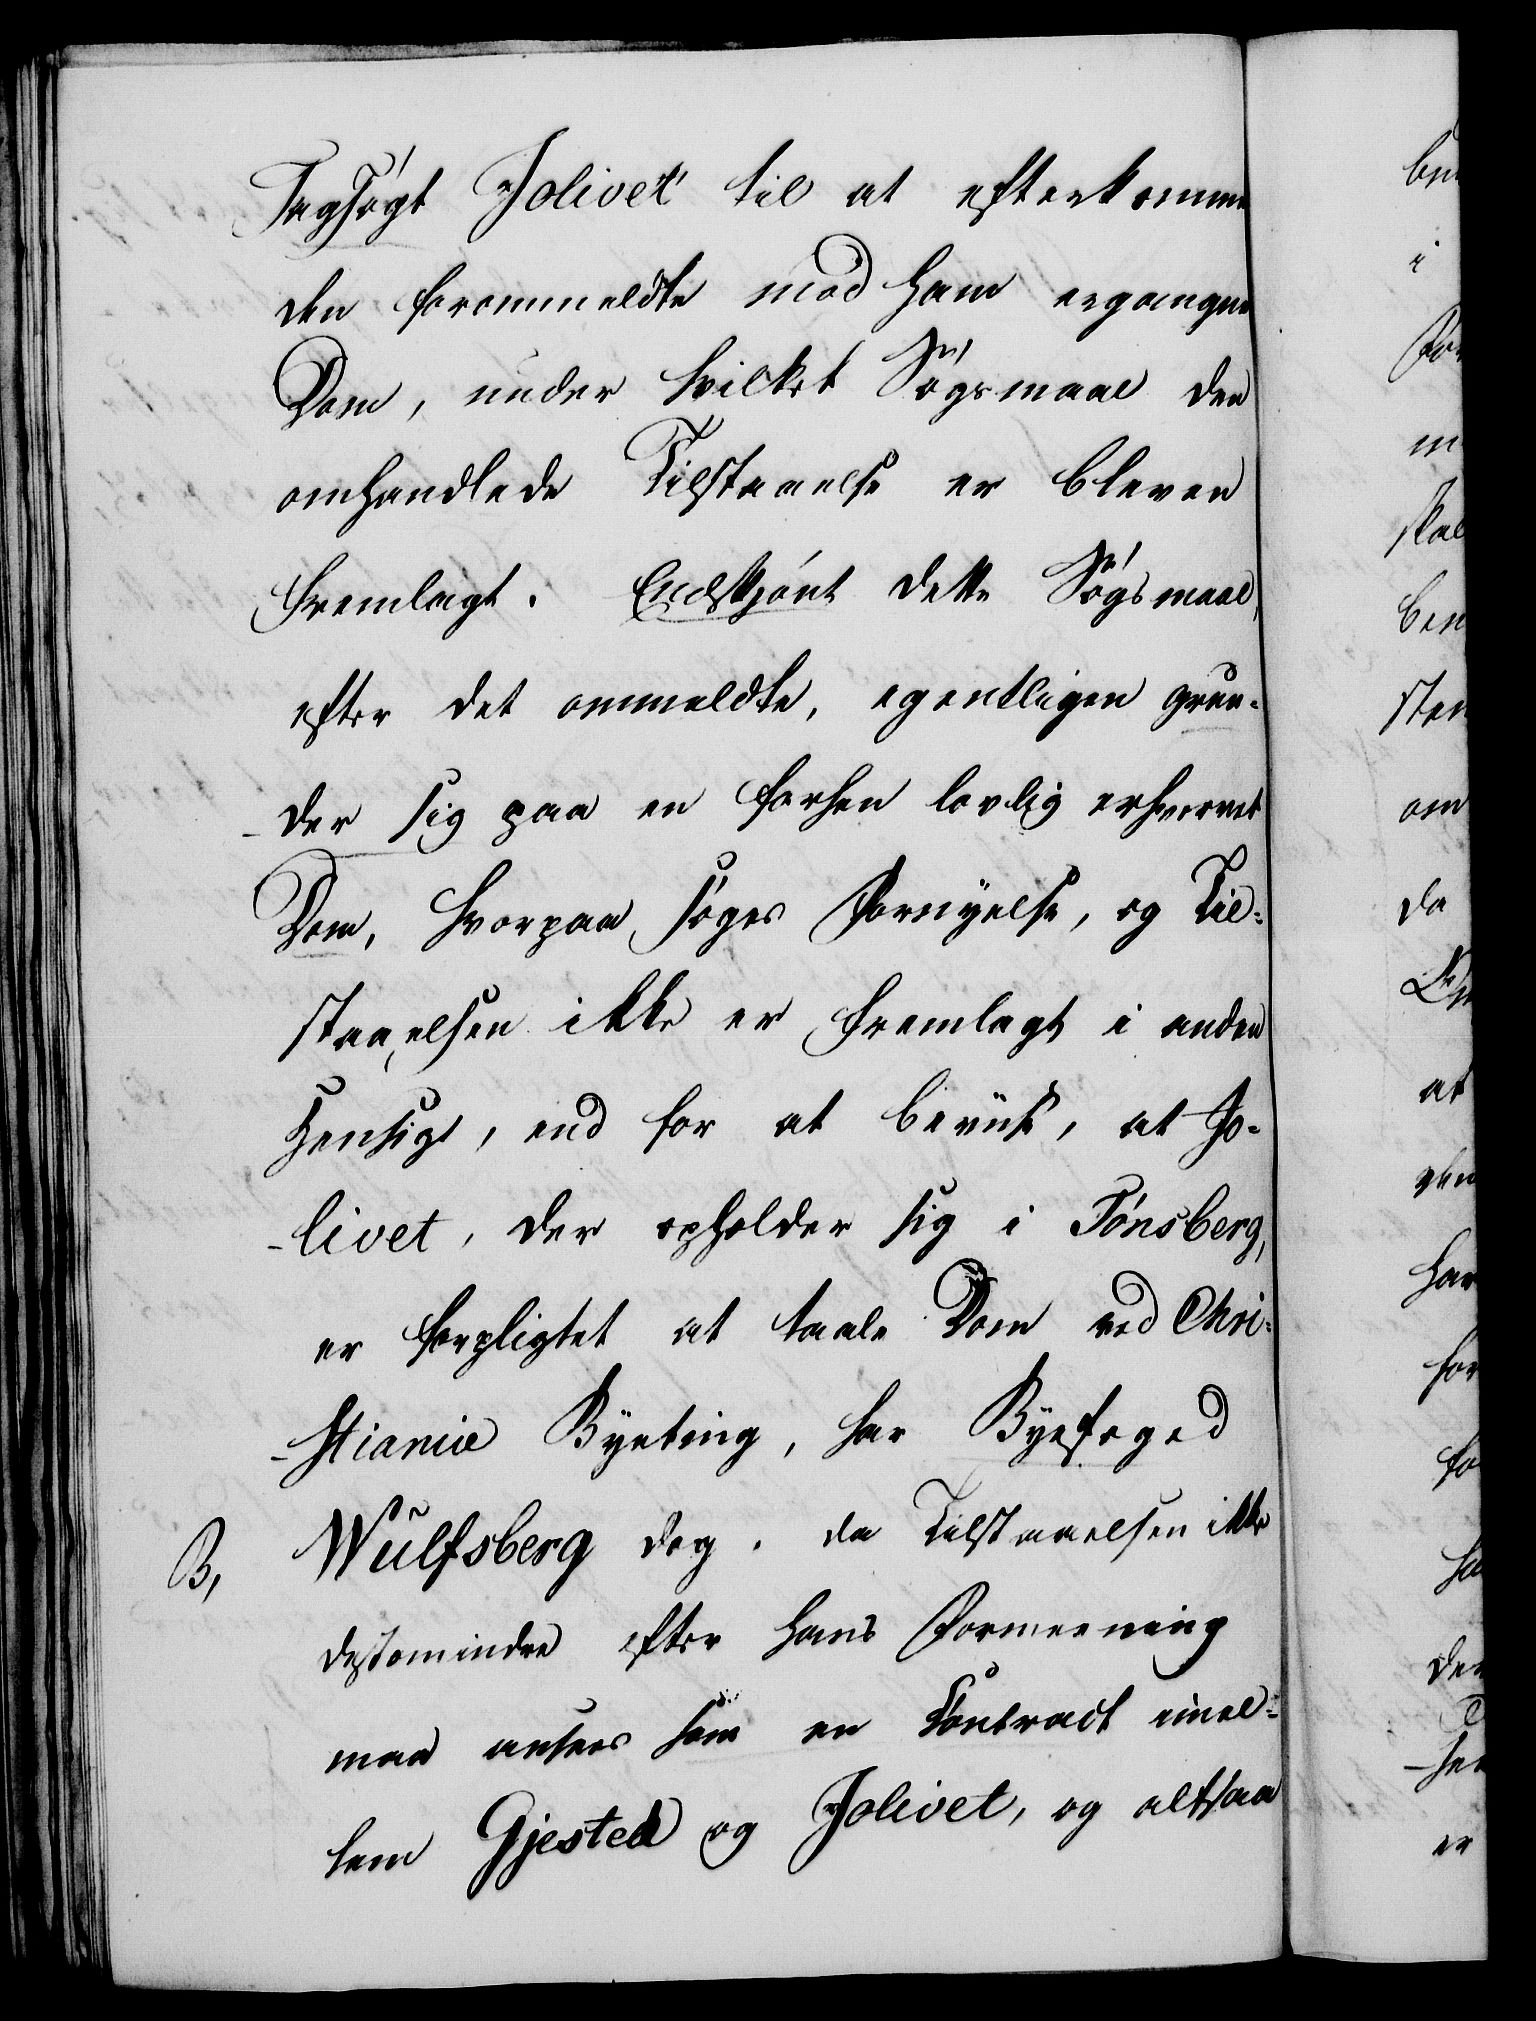 Sagsøgt Jolivet til at efterkomme
den forommeldte mod ham ergangne
Dom, under hvilket Søgsmaal den
omhandlede Tilstaaelse er bleven
fremlagt. Endskjønt dette Søgsmaal,
efter det ommeldte, egentligen grun-
-der sig paa en forhen lovlig erhvervet
Dom, hvorpaa søges Fornyelse, og Til-
staaelsen ikke er fremlagt i anden
Hensigt, end for at beviise, at Jo-
-livet, der opholder sig i Tønsberg,
er forpligtet at taale Dom ved Chri-
-stiania Byeting, har Byefoged
B, Wulfsberg dog, da Tilstaaelsen ikke
destomindre efter hans Formeening
maa ansees som en Contract imel-
lem Gjested og Jolivet, og altsaa